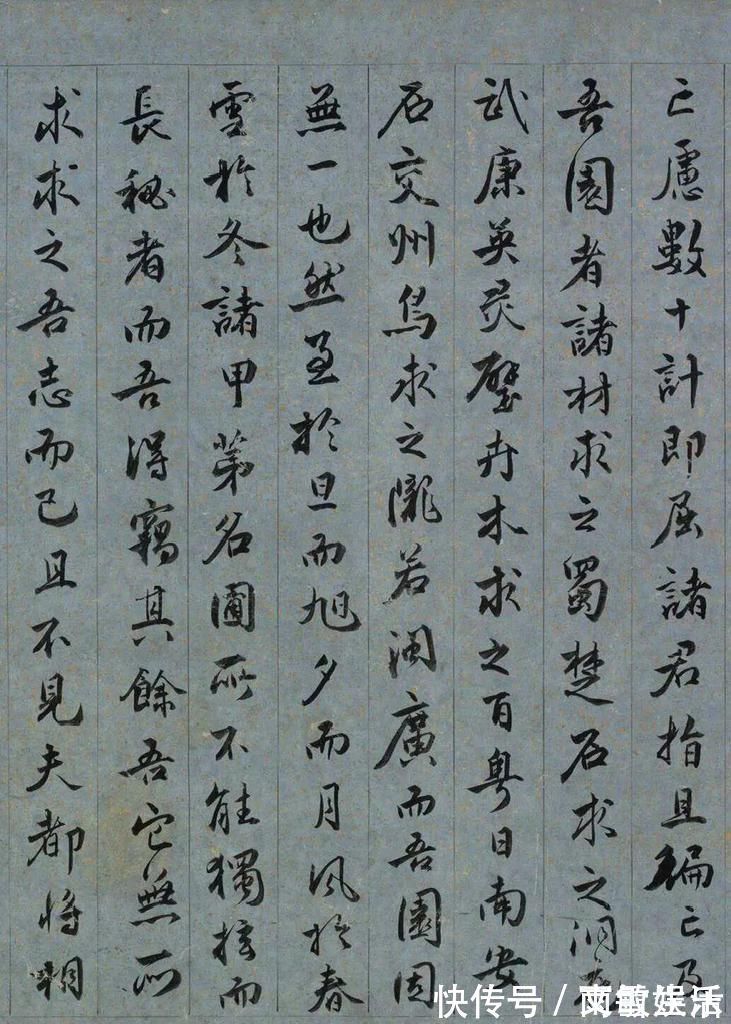 亡慮數十計即屈諸君指且徧亡及
吾園者諸材求之蜀楚石求之洞
武康英灵壁卉木求之百粤日南安
石交州鳥求之隴若閩廣而吾園固
無一也然至於旦而旭夕而月風於春
雪於冬諸甲第名圃所不能獨擅而
長秘者而吾得竊其餘吾它無所
求求之吾志而已且不見夫都將相
快传号 /